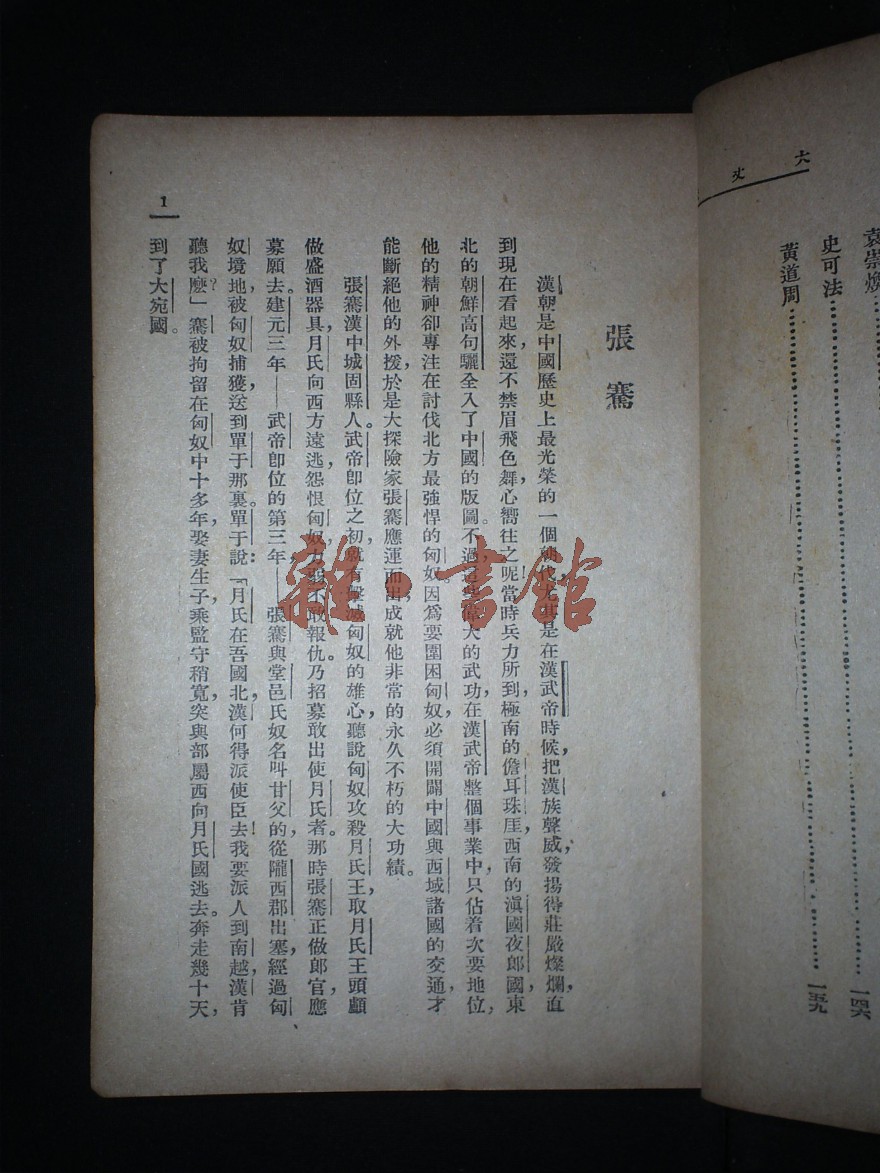 大丈
袁崇煥
史可法………………一四六
黃道周………………一五九
張騫
漢朝是中國歷史上最光榮的一個朝代,尤其是在漢武帝時候,把漢族聲威,發揚得莊嚴燦爛,直
到現在看起來,還不禁眉飛色舞,心嚮往之呢當時兵力所到,極南的儋耳珠厓,西南的滇國夜郎國,東
北的朝鮮高句驪全入了中國的版圖。不過這些偉大的武功在漢武帝整個事業中,只佔着次要地位,
他的精神卻專注在討伐北方最強悍的匈奴因爲要圍困匈奴必須開闢中國與西域諸國的交通,才
能斷絕他的外援,於是大探險家張騫應運而出,成就他非常的永久不朽的大功績。
張騫漢中城固縣人。武帝卽位之初,就有擊滅匈奴的雄心,聽說匈奴攻殺月氏王,取月氏王頭顱
做盛酒器具,月氏向西方遠逃,怨恨匈奴,力弱不敢報仇,乃招募敢出使月氏者。那時張騫正做郎官,應
募願去。建元三年——武帝卽位的第三年——張騫與堂邑氏奴名叫甘父的,從隴西郡出塞,經過匈
奴境地,被匈奴捕獲,送到單于那裏。單于說:「月氏在吾國北,漢何得派使臣去!我要派人到南越,漢肯
聽我麽?」騫被拘留在匈奴中十多年,娶妻生子,乘監守稍寬,突與部屬西向月氏國逃去。奔走幾十天,
到了大宛國。
1
雜·書館